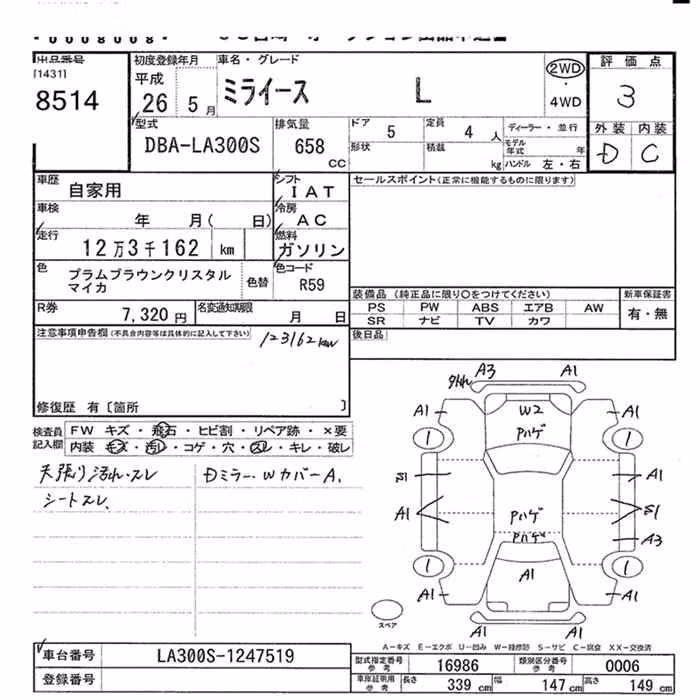 出品番号 初度登録年月 車名・グレード 評価点
[1431] 平成
8514 26 5月 ミライース L 2WD 3
・
4WD
外装 内装
D C
型式 排気量 ドア 5 定員 4人 ディーラー・並行
DBA-LA300S 658 CC 形状 積載 kg モデル年式 年
ハンドル 左・右
車歴 自家用 シフト IAT セールスポイント(正常に機能するものに限ります)
車検 年 月( 日) 冷房 AC
走行 12万3千162 km 燃料 ガソリン
色 プラムブラウンクリスタル 色替 色コード R59
マイカ
装備品 (純正品に限り○をつけてください) 新車保証書
PS PW ABS エアB AW 有・無
SR ナビ TV カワ
R券 7,320円 名変通知期限 月 日
後日品
注意事項申告欄(不具合内容等は具体的に記入して下さい) 123162km
修復歴 有〔箇所 〕
検査員 FW キズ・飛石・ヒビ割・リペア跡・×要
記入欄 内装・キズ・汚レ・コゲ・穴・スレ・キレ・破レ
天張り汚れ・スレ Dミラー・WカバーA.
シートスレ、
A3 A1
外れ
A1 W2 A1
Pハゲ
1 1
S1 A1
A1 Pハゲ S1
Pハゲ A3
1 1
A1 A1 A1
スペア A1
A-キズ E-エクボ U-凹み W-補修跡 S-サビ C-腐食 XX-交換済
車台番号 LA300S-1247519 型式指定番号 参考 16986 類別区分番号 参考 0006
自動車番号 車庫証明用 参考 長さ 339cm 幅 147cm 高さ 149cm